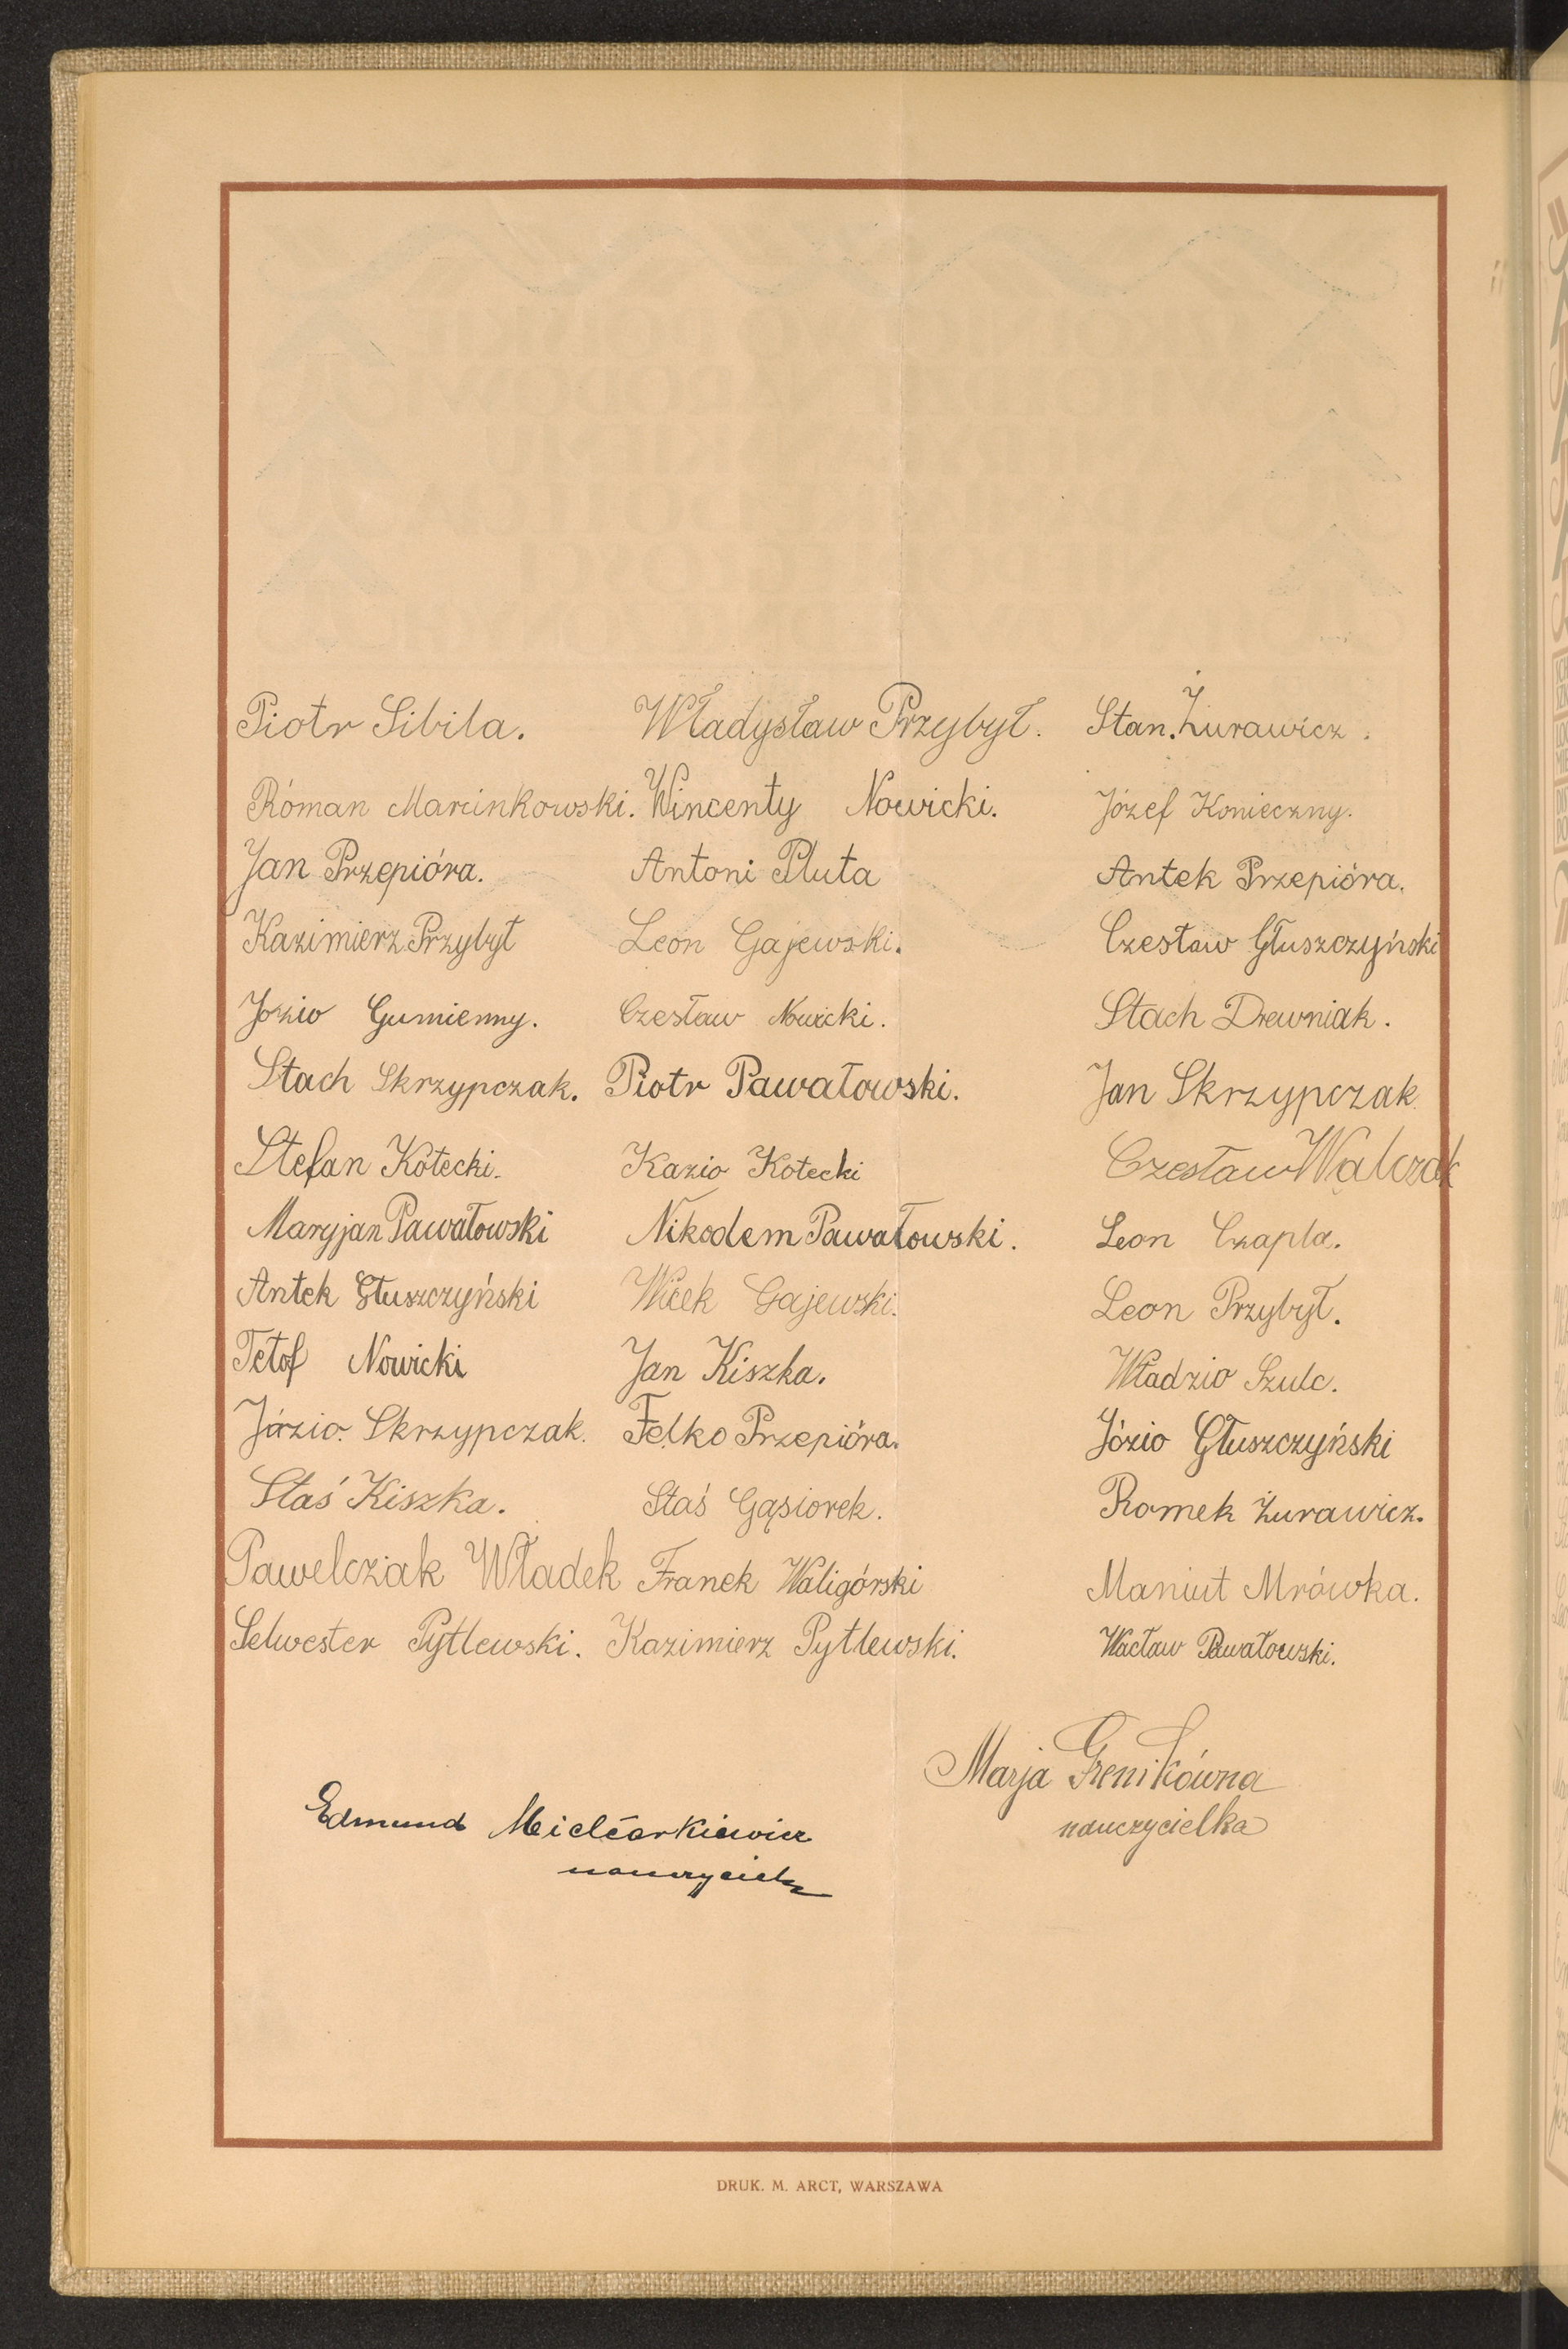 Piotr Sibila. Władysław Przybył. Stan. Żurawicz.
Róman Marcinkowski. Wincenty Nowicki. Józef Konieczny.
Jan Przepióra. Antoni Pluta Antek Przepióra.
Kazimierz Przybył Leon Gajewski. Czesław Głuszczyński
Józio Gumienny. Czesław Nowicki. Stach Drewniak.
Stach Skrzypczak. Piotr Pawałowski. Jan Skrzypczak.
Stefan Kotecki. Kazio Kotecki Czesław Walczak
Maryjan Pawałowski Nikodem Pawałowski. Leon Czapla.
Antek Głuszczyński Wicek Gajewski. Leon Przybył.
Tetof Nowicki Jan Kiszka. Władzio Szulc.
Józio. Skrzypczak. Felko Przepióra. Józio Głuszczyński
Staś Kiszka. Staś Gąsiorek. Romek Żurawicz.
Pawelczak Władek Franek Waligórski Maniut Mrówka.
Selwester Pytlewski. Kazimierz Pytlewski. Wacław Pawałowski.
Marja Grenikówna
nauczycielka
Edmund
nauczyciel
DRUK. M. ARCT, WARSZAWA